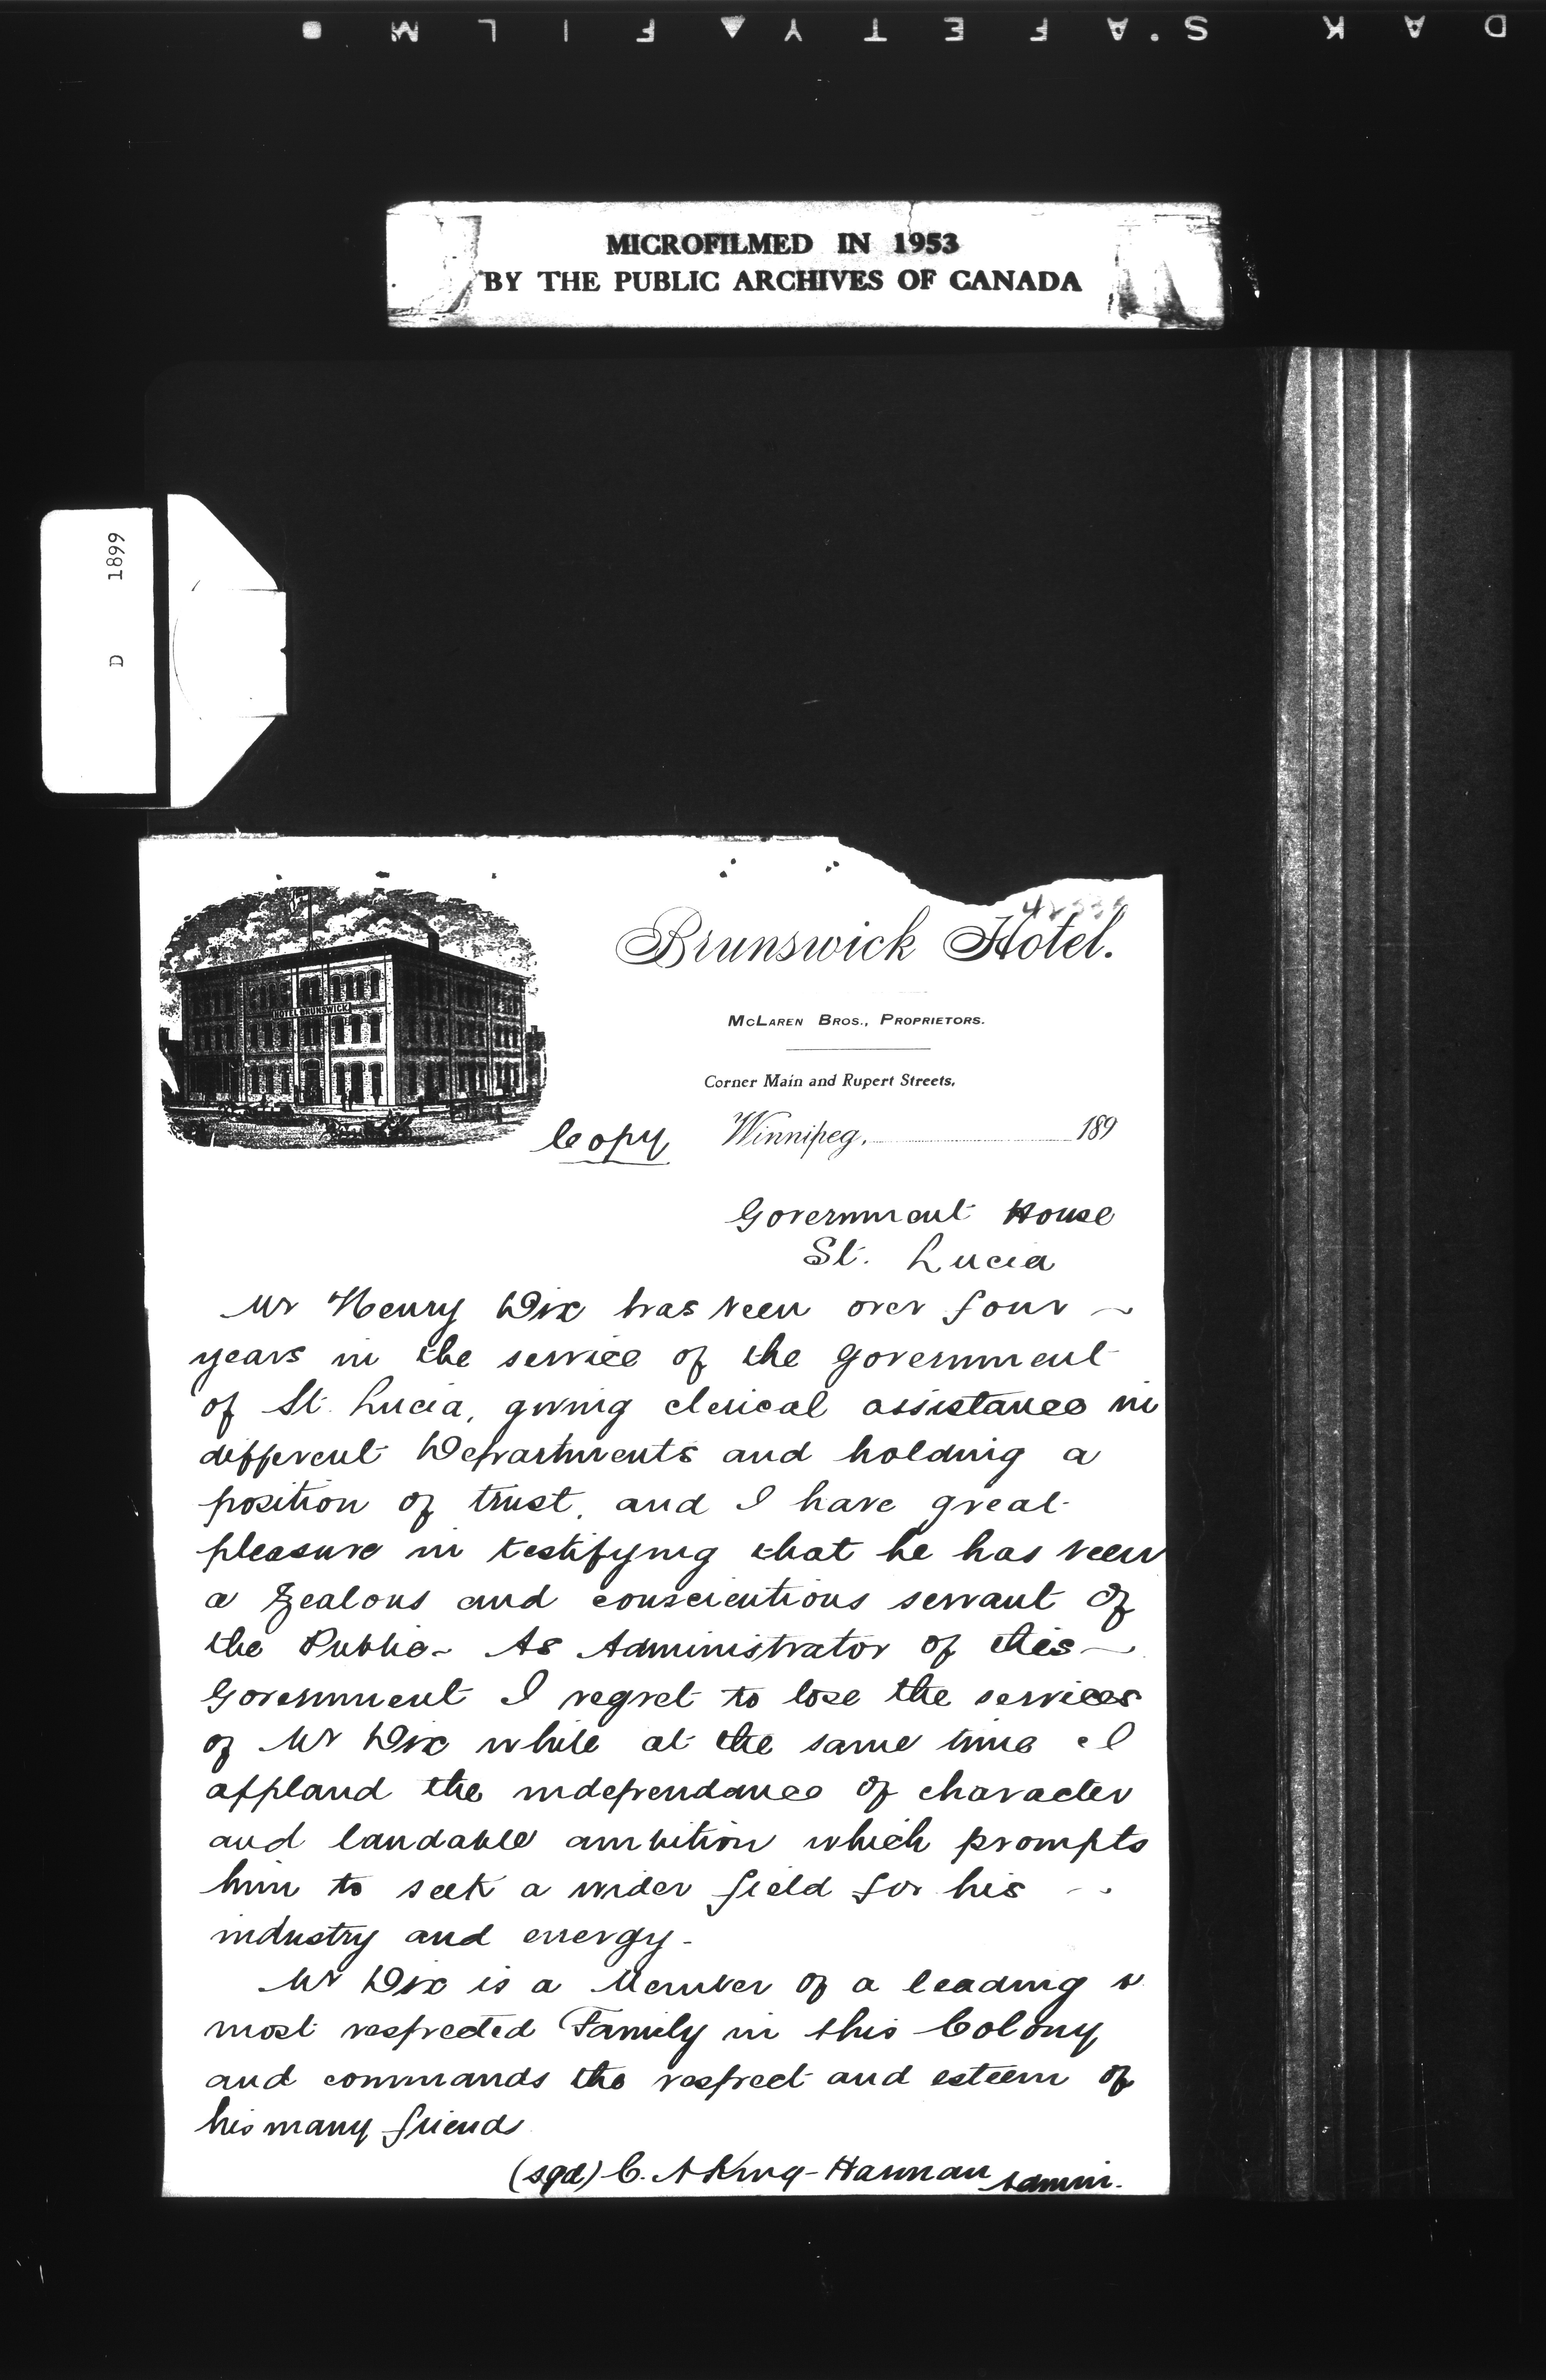 KODAK S'AFETY▲FILM
MICROFILMED IN 1953
BY THE PUBLIC ARCHIVES OF CANADA
D 1899
HOTEL BRUNSWICK
Brunswick Hotel.
McLaren Bros., Proprietors.
Corner Main and Rupert Streets,
Copy
Winnipeg, 189
Government House
St. Lucia
Mr Henry Dix has been over four ~
years in the service of the Government
of St. Lucia, giving clerical assistance in
different Departments and holding a
position of trust, and I have great
pleasure in testifying that he has been
a zealous and conscientious servant of
the Public - As Administrator of this -
Government I regret to lose the services
of Mr Dix while at the same time I
applaud the independance of character
and laudable ambition which prompts
him to seek a wider field for his -
industry and energy -
Mr Dix is a Member of a leading &
most respected Family in this Colony
and commands the respect and esteem of
his many friends
(sgd) C. A King-Harman Admin.